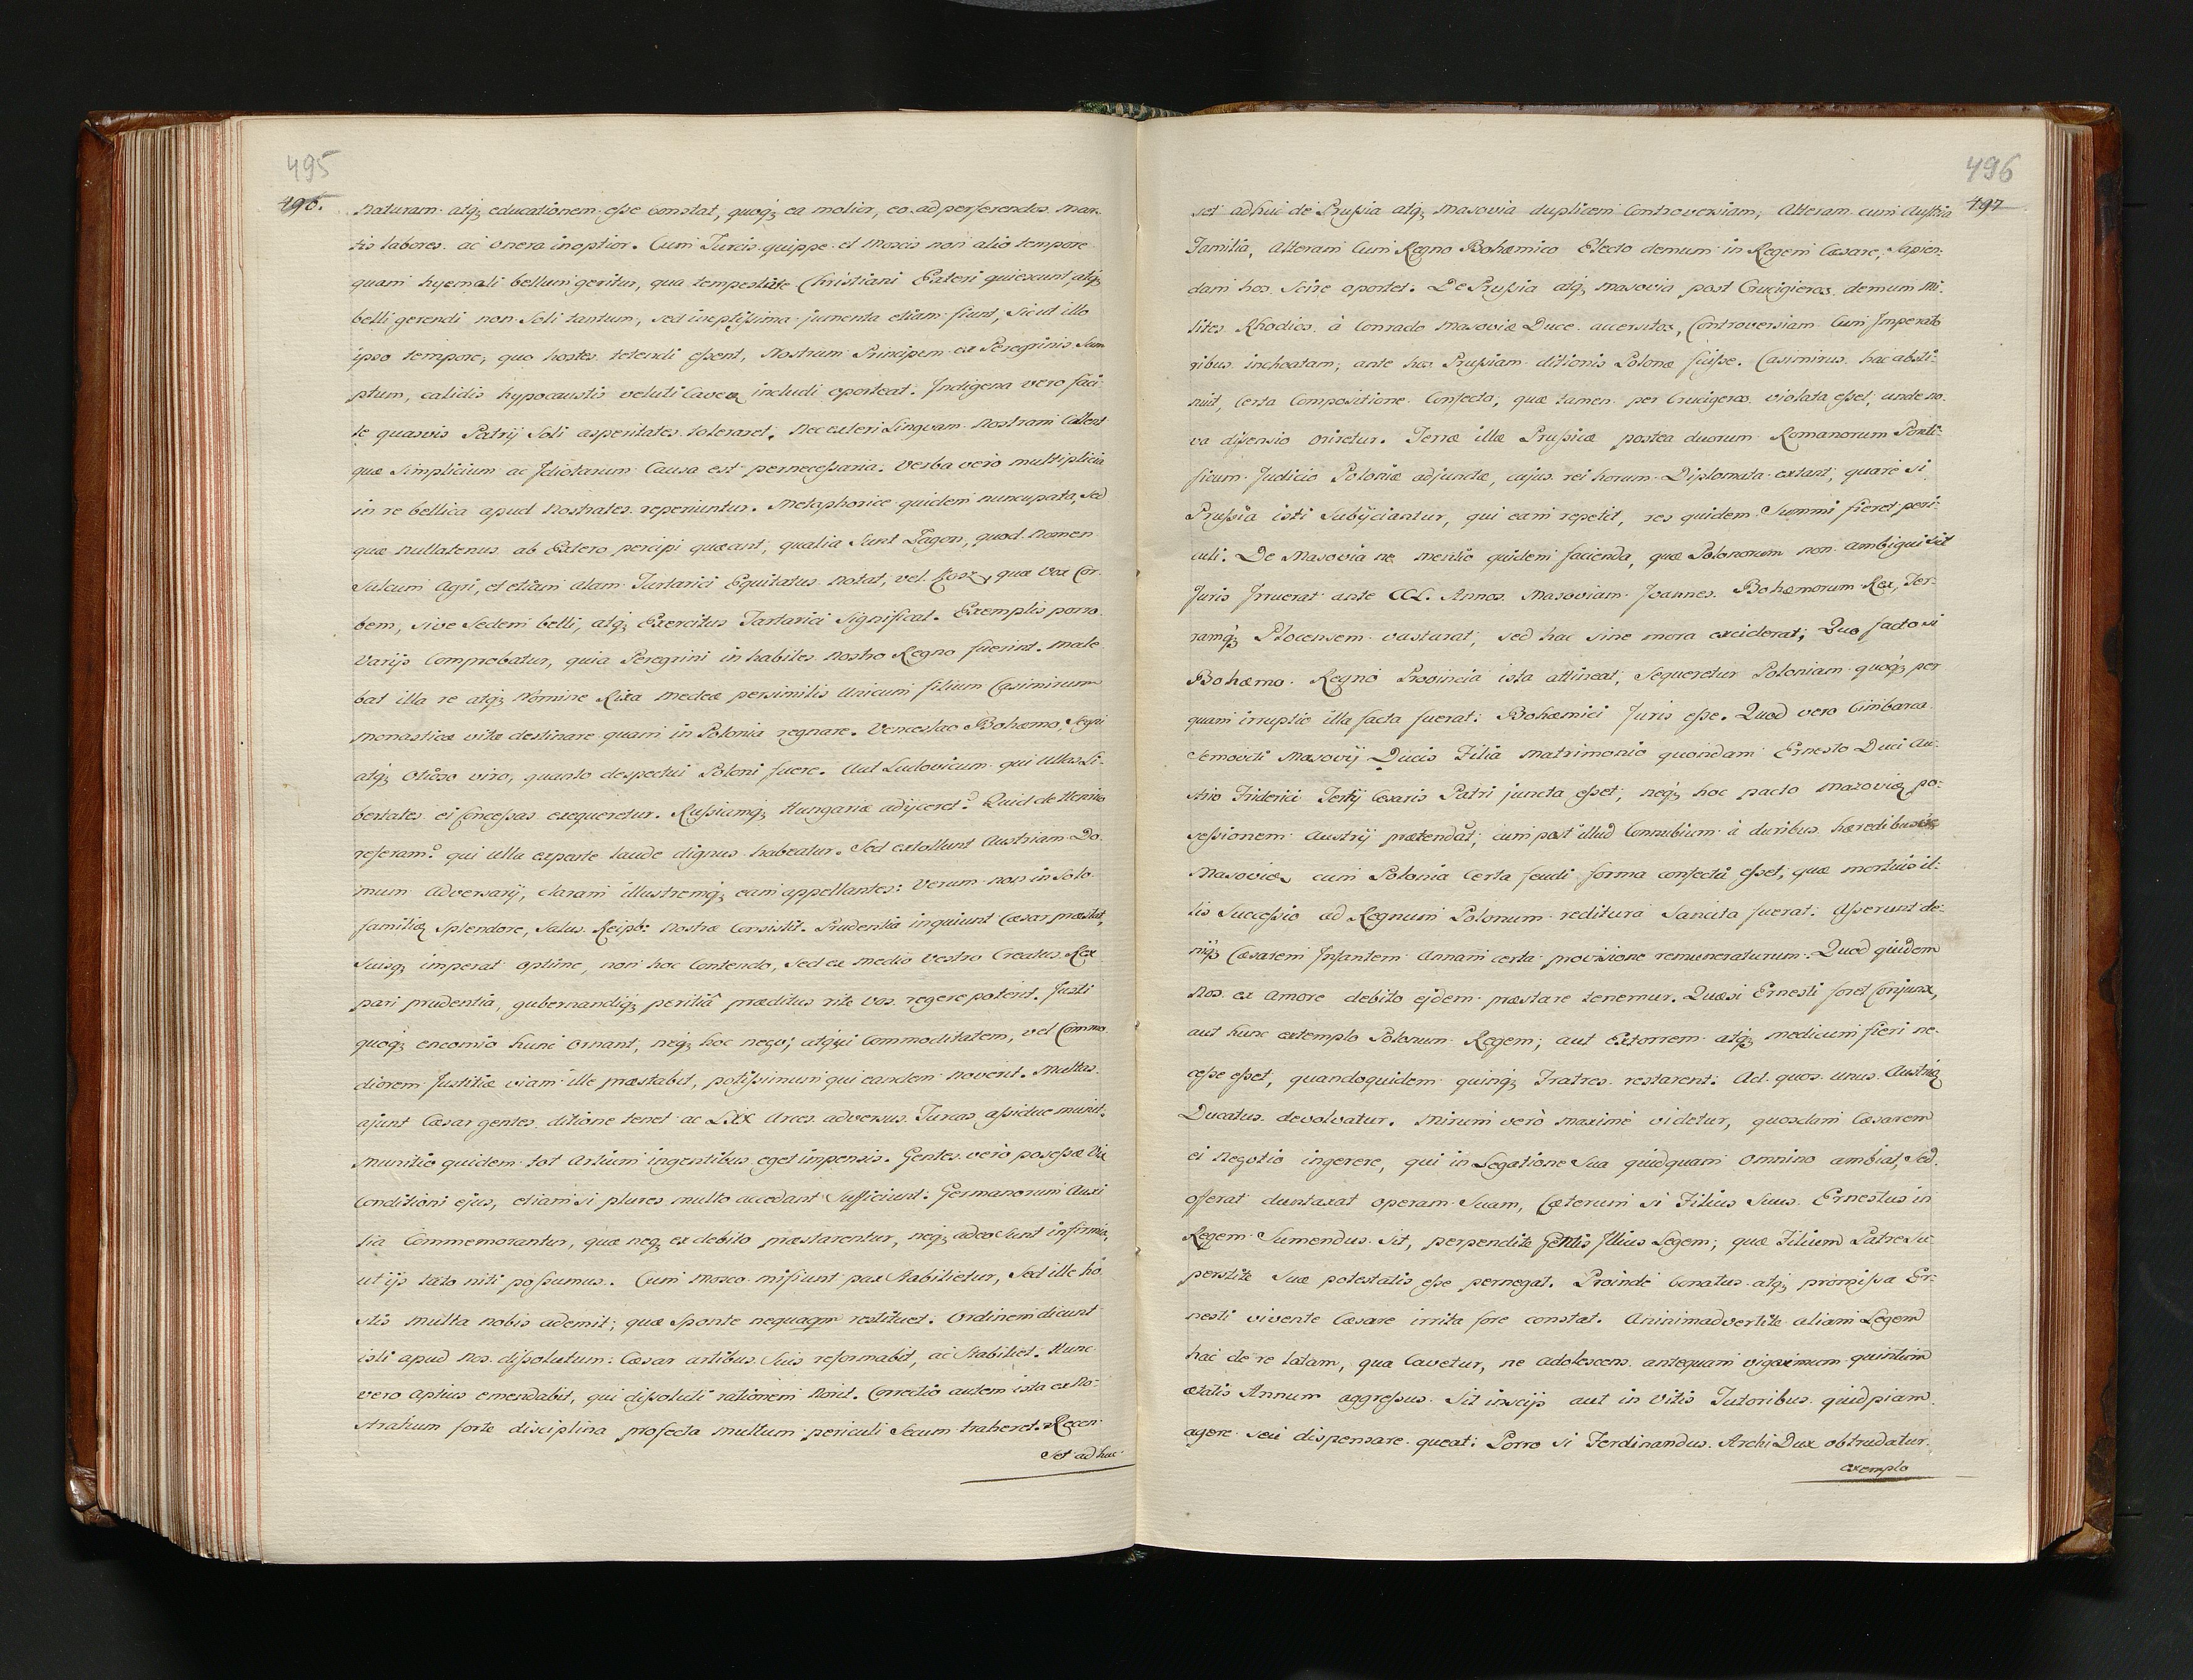 495
496.
naturam atq; educationem esse constat, quoq; ea molior, eo ad perferendos mar-
tis labores ac onera ineptior. Cum Turcis quippe et Moscis non alio tempore
quam hyemali bellum geritur, qua tempestate Christiani Exteri quiescunt atq;
belli gerendi non Soli tantum, sed ineptissima jumenta etiam fiunt, sicut illo
ipso tempore, quo hostes tetendi essent, Nostrum Principem ex Peregrinis Sum
ptum, calidis hypocaustis veluti Cavea includi oporteat. Indigena vero faci
le quasvis Patrij Soli asperitates toleraret. Nec exteri Linguam nostram Callent
quæ Simplicium ac Idiotarum Causa est pernecessaria. Verba vero multiplicia
in re bellica apud Nostrates reperiuntur. Metaphorice quidem nuncupata, sed
quæ nullatenus ab Extero percipi quæant, qualia Sunt Zagon, quod nomen
Sulcum Agri, et etiam alam Tartarici Equitatus notat, vel Kosz, quæ Vox Cor-
bem, sive Sedem belli, atq; Exercitus Tartarici Significat. Exemplis porro
Varijs Comprobatur, quia Peregrini in habiles Nostro Regno fuerint. Male
bat illa re atq; Nomine Rixa Medeæ persimilis Unicum filium Casimirum
Monasticæ vitæ destinare quam in Polonia regnare. Venceslao Bohæmo, Segni
atq; Otioso viro, quanto despectui Poloni fuere. Aut Ludovicum qui Ullas Li-
bertates ei Concessas exequeretur. Russiamq; Hungariæ adijceret? Quid de Henrico
referam? qui ulla experte laude dignus habeatur. Sed extollunt Austriam Do
mum Adversarij, claram illustremq; eam appellantes: Verum non in Solo
familiæ Splendore, Salus Reipb: Nostræ Consistit. Prudentia inquiunt Cæsar præstat,
Suisq; imperat optime, non hoc Contendo, Sed ex medio Vestro Creatus Rex
pari prudentia, gubernandiq; peritiâ præditus rite vos regere poterit. Justi
quoq; encomio hunc Ornant, neq; hoc nego; atqui Commoditatem, vel Commo
diorem Justitiæ viam ille præstabit, potissimum qui eandem Noverit. Multas
ajunt Cæsar gentes ditione tenet ac LXX Arces adversus Turcas assidue munit.
Munitio quidem tot Artium ingentibus eget impensis. Gentes vero possessæ Vix
Conditioni ejus, etiamsi plures multo accedant Sufficiunt. Germanorum Auxi
lia Commemorantur, quæ neq; ex debito præstarentur, neq; adeo Sunt infirmia,
ut ijs tuto niti possumus. Cum Mosco misiunt pax Stabilietur, Sed ille ho
stis Multa nobis ademit; quæ Sponte nequaqm restituet. Ordinem dicunt
isti apud Nos dissolutum: Cæsar artibus Suis reformabit, ac Stabiliet. Hunc
vero Aptius emendabit, qui dissoluti rationem Norit. Correctio autem ista ex No-
stratium forte disciplina profecta multum periculi Secum traheret. Recen
Set ad huc

496
497
set adhuc de Prussia atq; Masovia duplicem Controversiam, Alteram cum Austria
Familia, Alteram Cum Regno Bohæmico Electo demum in Regem Cæsare, Sapien-
dam hos Scire oportet. De Prussia atq; Masovia post Crucigieros demum Mi-
lites Rhodios à Conrado Masoviæ Duce accersitos, Controversiam Cum Imperato
ribus inchoatam; ante hos Prussiam ditionis Polonæ fuisse. Casimirus hac absti-
nuit, Certa Compositione Confecta, quæ tamen per Crucigeros violata esset, unde no-
va dissensio oriretur. Terræ illæ Prussicæ postea duorum Romanorum Ponti-
ficum Judicio Poloniæ adjunctæ, cujus rei horum Diplomata extant, quare si
Prussia isti Subijciantur, qui eam repetit, res quidem Summi fieret peri-
culi. De Masovia ne mentio quidem facienda, quæ Polonorum non ambigui sit
Juris Irruerat ante CCL. Annos Masoviam Joannes Bohæmorum Rex, Ter-
ramq; Plocensem vastarat, sed hac sine mora exciderat; Quo facto si
Bohæmo Regno Provincia ista attineat, Sequeretur Poloniam quoq; per
quam irruptio illa facta fuerat: Bohæmici Juris esse. Quod vero Cimbarca
Semoviti Masovij Ducis Filia matrimonio quondam Ernesto Duci Au-
strio Friderici Tertij Cæsaris Patri juncta esset, neq; hoc pacto Masoviæ po-
sessionem Austrij prætendat, cum post illud Connubium à duribus hæredibus
Masoviæ cum Polonia Certa feudi forma confecta esset, quæ mortuis il-
lis Successio ad Regnum Polonum reditura Sancita fuerat. Asserunt de-
niq; Cæsarem Infantem Annam certa provisione remuneraturum. Quod quidem
Nos ex Amore debito ejdem præstare tenemur. Quasi Ernesti foret Conjunx,
aut hunc extemplo Polonum Regem; aut Extorrem atq; medicum fieri ne-
cesse esset, quandoquidem quinq; Fratres restarent: Ad quos unus Austriæ
Ducatus devolvatur. Mirum verò maxime videtur, quosdam Cæsarem
ei Negotio ingerere, qui in Legatione Sua quidquam Omnino ambiat, Sed
offerat duntaxat operam Suam, Cæterum si Filius Suus Ernestus in
Regem Sumendus Sit, perpendite Gentis Illius Legem; quæ Filium Patre Su
perstite Suæ potestatis esse pernegat. Proinde Conatus atq; promissa Er-
nesti vivente Cæsare irrita fore constat. Aninimadvertite aliam Legem
hac de re latam, qua Cavetur, ne Adolescens antequam vigesimum quintum
ætatis Annum aggressus Sit insciis aut in Vitis Tutoribus quidpiam
agere seu dispensare queat: Porro si Ferdinandus Archi Dux obtrudatur
exemplo